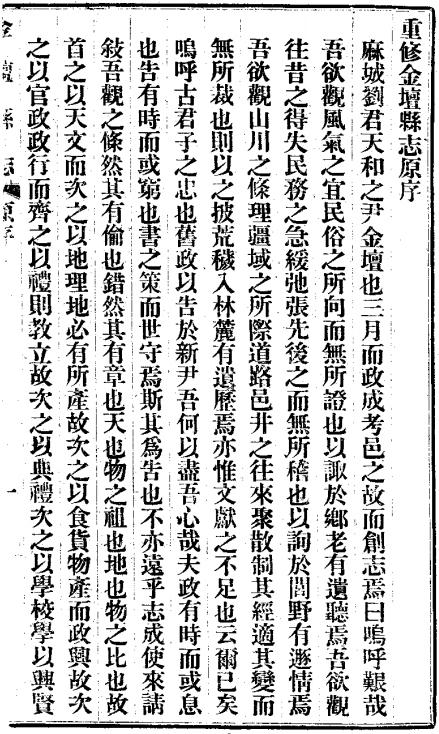 重修金壇縣志原序
麻城劉君天和之尹金壇也三月而政成考邑之故而創志焉曰嗚呼艱哉
吾欲觀風氣之宜民俗之所向而無所證也以諏於鄉老有遺聽焉吾欲觀
往昔之得失民務之急緩弛張先後之而無所稽也以詢於閭野有遯情焉
吾欲觀山川之條理疆域之所際道路邑井之往來聚散制其經適其變而
無所裁也則以之披荒穢入林麓有遺歷焉亦惟文獻之不足也云爾已矣
嗚呼古君子之忠也舊政以告於新尹吾何以盡吾心哉夫政有時而或息
也告有時而或窮也書之策而世守焉斯其為告也不亦遠乎志成使來請
敍吾觀之條然其有倫也錯然其有章也天也物之祖也地也物之比也故
首之以天文而次之以地理地必有所產故次之以食貨物產而政興故次
之以官政政行而齊之以禮則教立故次之以典禮次之以學校學以興賢
金壇縣志 原序 一